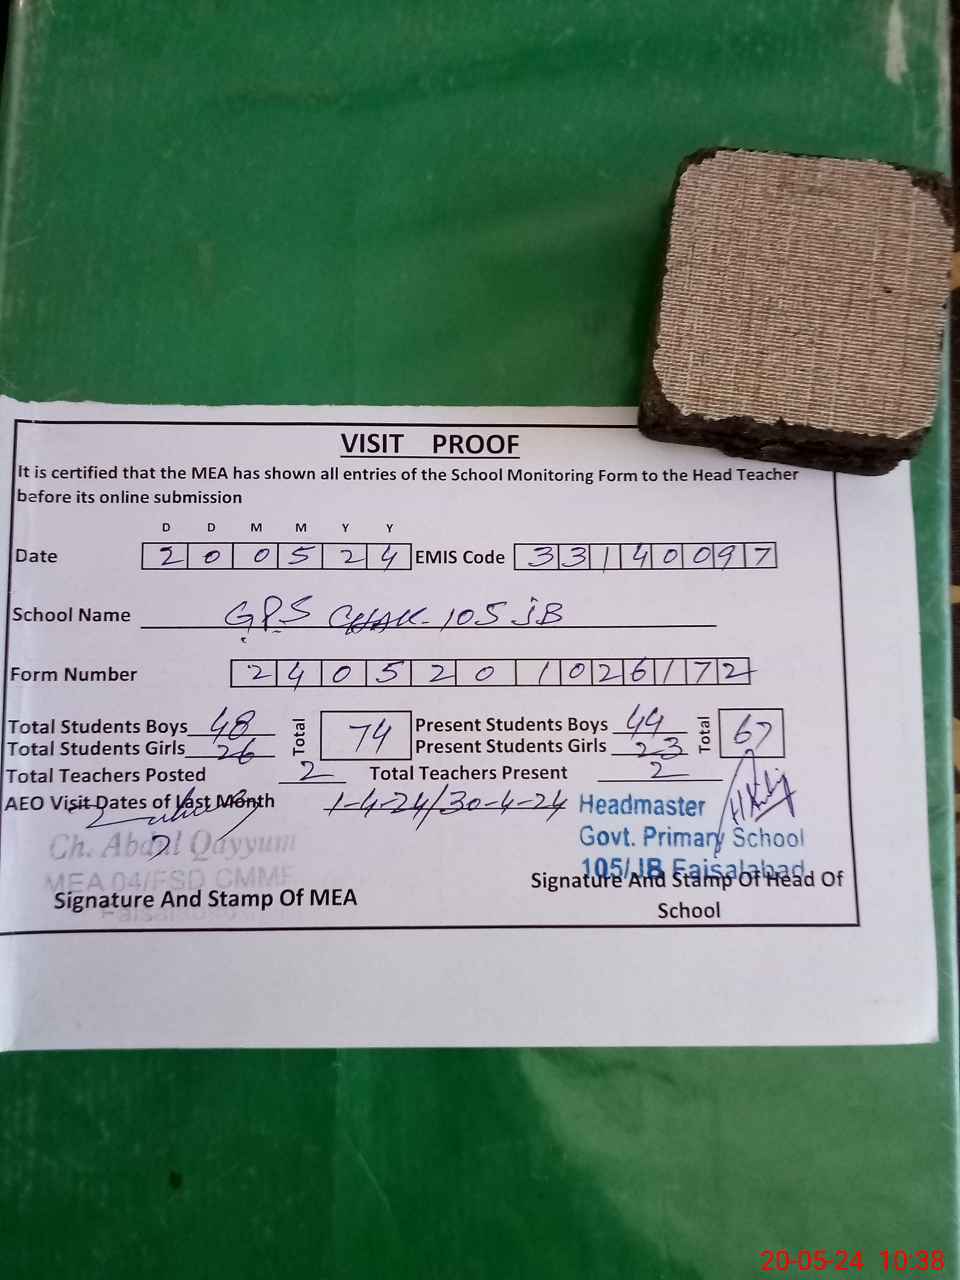 VISIT PROOF
It is certified that the MEA has shown all entries of the School Monitoring Form to the Head Teacher
before its online submission
D D M M Y Y
Date 2 0 0 5 2 4 EMIS Code 3 3 1 4 0 0 9 7
School Name GPS CHAK-105 JB
Form Number 2 4 0 5 2 0 1 0 2 6 1 7 2
Total Students Boys 48 Total 74 Present Students Boys 44 Total 67
Total Students Girls 26 Present Students Girls 23
Total Teachers Posted 2 Total Teachers Present 2
AEO Visit Dates of last Month 1-4-24/30-4-24
Headmaster
Govt. Primary School
105/JB Faisalabad
Ch. Abdul Qayyum
MEA 04/FSD CMMF
Signature And Stamp Of MEA
Signature And Stamp Of Head Of
School
20-05-24 10:38